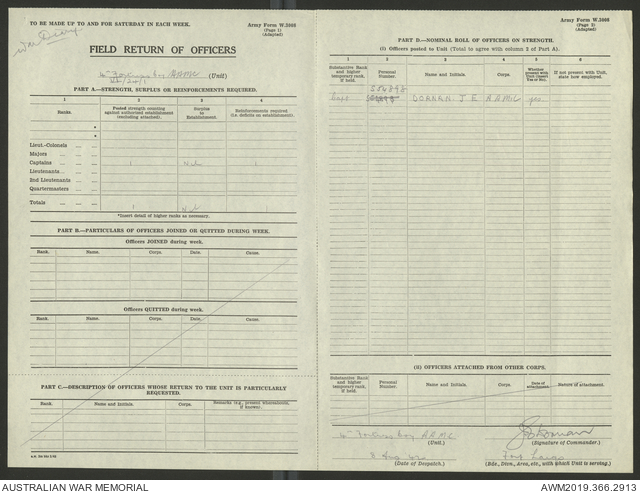 TO BE MADE UP TO AND FOR SATURDAY IN EACH WEEK.
Army Form W.3008
(Page 1)
(Adapted)
War Diary
FIELD RETURN OF OFFICERS
AAMC (Unit)
PART A—STRENGTH, SURPLUS OR REINFORCEMENTS REQUIRED.
1 2 3 4
Ranks. Posted strength counting against authorised establishment (excluding attached). Surplus to Establishment. Reinforcements required (i.e. deficits on establishment).
*
*
Lieut.-Colonels
Majors
Captains 1 Nil 1
Lieutenants
2nd Lieutenants
Quartermasters
Totals 1 Nil 1
*Insert detail of higher ranks as necessary.
PART B.—PARTICULARS OF OFFICERS JOINED OR QUITTED DURING WEEK.
Officers JOINED during week.
Rank. Name. Corps. Date. Cause.
Officers QUITTED during week.
Rank. Name. Corps. Date. Cause.
PART C.—DESCRIPTION OF OFFICERS WHOSE RETURN TO THE UNIT IS PARTICULARLY REQUESTED.
Rank. Name and Initials. Corps. Remarks (e.g., present whereabouts, if known).
Army Form W.3008
(Page 2)
(Adapted)
PART D.—NOMINAL ROLL OF OFFICERS ON STRENGTH.
(I) Officers posted to Unit (Total to agree with column 2 of Part A).
1 2 3 4 5 6
Substantive Rank and higher temporary rank, if held. Personal Number. Name and Initials. Corps. Whether present with Unit (insert Yes or No). If not present with Unit, state how employed.
Capt DORNAN. J E AAMC yes
(II) OFFICERS ATTACHED FROM OTHER CORPS.
Substantive Rank and higher temporary rank, if held. Personal Number. Name and Initials. Corps. Date of attachment. Nature of attachment.
AAMC
(Unit.)
(Signature of Commander.)
8 Aug 42
(Date of Despatch.)
Fort
(Bde., Divn., Area, etc., with which Unit is serving.)
AUSTRALIAN WAR MEMORIAL
AWM2019.366.2913